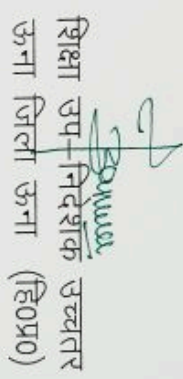 शिक्षा उप–निदेशक उच्चतर
ऊना जिला ऊना (हि0प्र0)